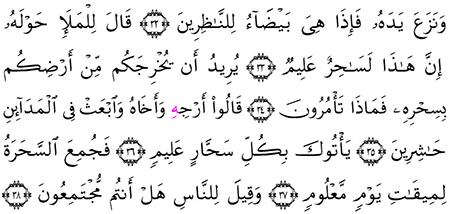 وَنَزَعَ يَدَهُۥ فَإِذَا هِىَ بَيْضَآءُ لِلنَّـٰظِرِينَ ﴿٣٣﴾ قَالَ لِلْمَلَإِ حَوْلَهُۥٓ
إِنَّ هَـٰذَا لَسَـٰحِرٌ عَلِيمٌ ﴿٣٤﴾ يُرِيدُ أَن يُخْرِجَكُم مِّنْ أَرْضِكُم
بِسِحْرِهِۦ فَمَاذَا تَأْمُرُونَ ﴿٣٤﴾ قَالُوٓا۟ أَرْجِهِ وَأَخَاهُ وَٱبْعَثْ فِى ٱلْمَدَآئِنِ
حَـٰشِرِينَ ﴿٣٥﴾ يَأْتُوكَ بِكُلِّ سَحَّارٍ عَلِيمٍ ﴿٣٦﴾ فَجُمِعَ ٱلسَّحَرَةُ
لِمِيقَـٰتِ يَوْمٍ مَّعْلُومٍ ﴿٣٧﴾ وَقِيلَ لِلنَّاسِ هَلْ أَنتُم مُّجْتَمِعُونَ ﴿٣٨﴾